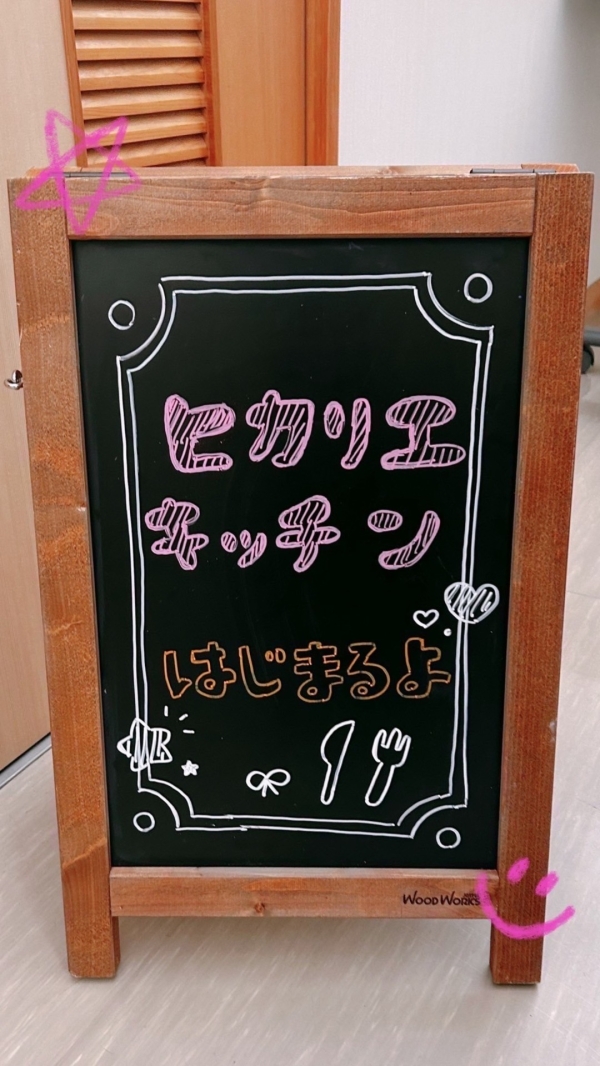 ヒカリエ
キッチン
はじまるよ
WOODWORKS